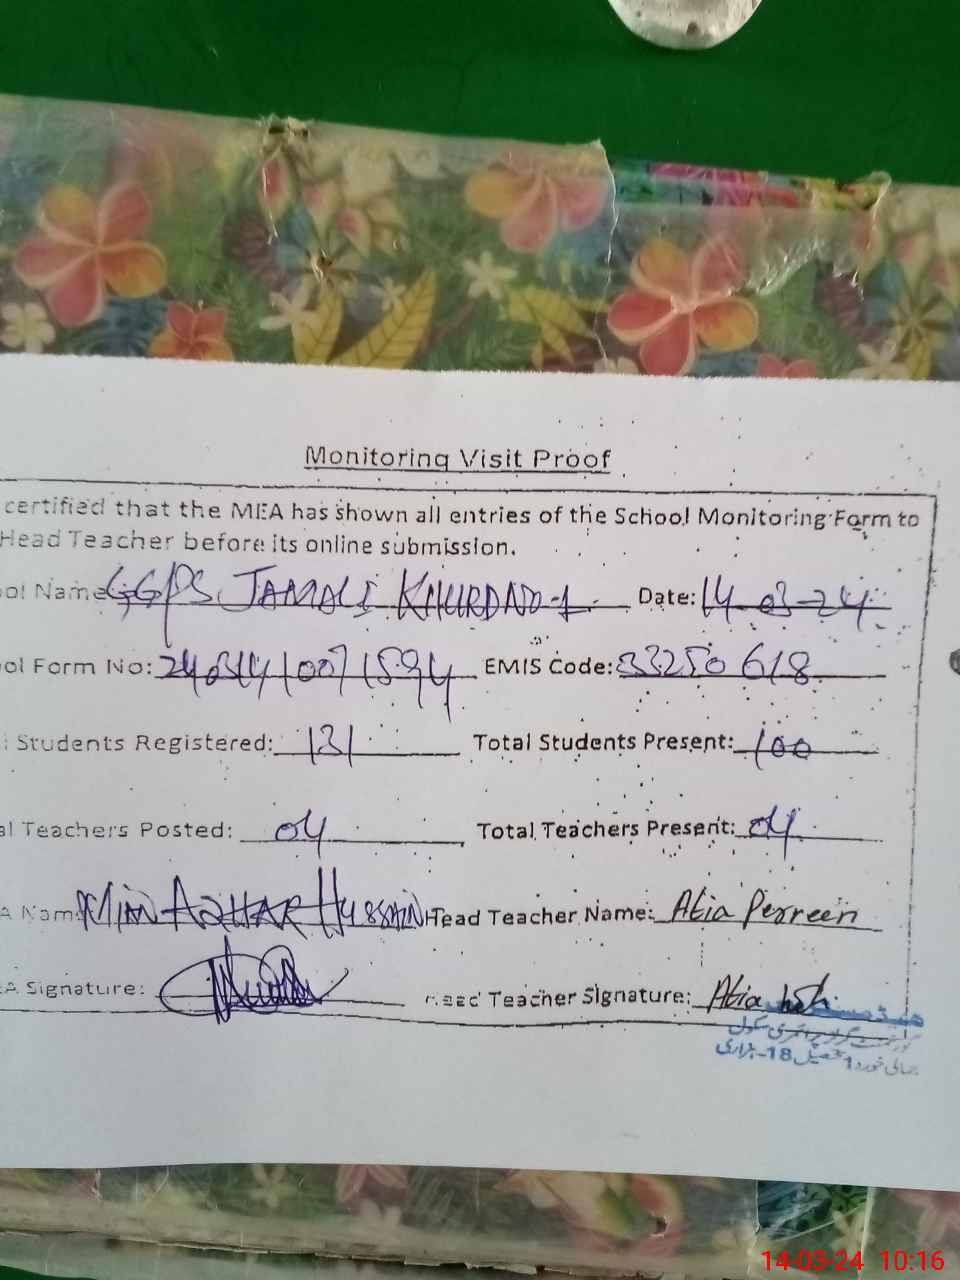 Monitoring Visit Proof
certified that the MEA has shown all entries of the School Monitoring Form to
Head Teacher before its online submission.
ol Name GGPS JAMALI KHURD NO-1 Date: 14-03-24
ol Form No: EMIS Code: 33250618
Students Registered: 131 Total Students Present: 100
al Teachers Posted: 04 Total Teachers Present: 04
A Name MIAN AZHAR HUSSAIN Head Teacher Name: Atia Perveen
A Signature: Head Teacher Signature: Atia
ہیڈ مسٹریس
گورنمنٹ گرلز پرائمری سکول
جمالی خورد 1 تحصیل 18-ہزاری
14-03-24 10:16